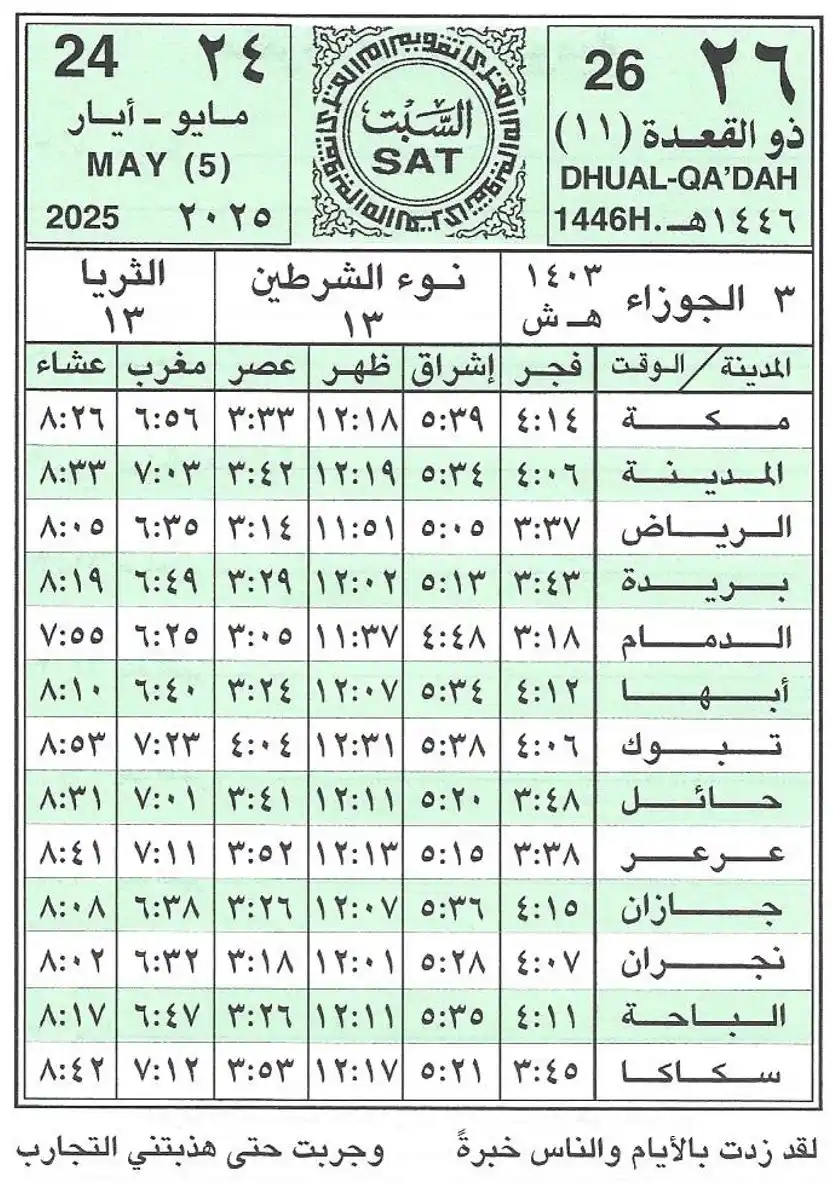 ٢٦ 26
ذو القعدة (١١)
DHUAL-QA'DAH
1446H. ١٤٤٦هـ
السَّبْت
SAT
24 ٢٤
مايو - أيار
MAY (5)
2025 ٢٠٢٥
٣ الجوزاء ١٤٠٣ هـ ش
نوء الشرطين ١٣
الثريا ١٣
المدينة / الوقت فجر إشراق ظهر عصر مغرب عشاء
مكة ٤:١٤ ٥:٣٩ ١٢:١٨ ٣:٣٣ ٦:٥٦ ٨:٢٦
المدينة ٤:٠٦ ٥:٣٤ ١٢:١٩ ٣:٤٢ ٧:٠٣ ٨:٣٣
الرياض ٣:٣٧ ٥:٠٥ ١١:٥١ ٣:١٤ ٦:٣٥ ٨:٠٥
بريدة ٣:٤٣ ٥:١٣ ١٢:٠٢ ٣:٢٩ ٦:٤٩ ٨:١٩
الدمام ٣:١٨ ٤:٤٨ ١١:٣٧ ٣:٠٥ ٦:٢٥ ٧:٥٥
أبها ٤:١٢ ٥:٣٤ ١٢:٠٧ ٣:٢٤ ٦:٤٠ ٨:١٠
تبوك ٤:٠٦ ٥:٣٨ ١٢:٣١ ٤:٠٤ ٧:٢٣ ٨:٥٣
حائل ٣:٤٨ ٥:٢٠ ١٢:١١ ٣:٤١ ٧:٠١ ٨:٣١
عرعر ٣:٣٨ ٥:١٥ ١٢:١٣ ٣:٥٢ ٧:١١ ٨:٤١
جازان ٤:١٥ ٥:٣٦ ١٢:٠٧ ٣:٢٦ ٦:٣٨ ٨:٠٨
نجران ٤:٠٧ ٥:٢٨ ١٢:٠١ ٣:١٨ ٦:٣٢ ٨:٠٢
الباحة ٤:١١ ٥:٣٥ ١٢:١١ ٣:٢٦ ٦:٤٧ ٨:١٧
سكاكا ٣:٤٥ ٥:٢١ ١٢:١٧ ٣:٥٣ ٧:١٢ ٨:٤٢
لقد زدت بالأيام والناس خبرةً وجربت حتى هذبتني التجارب